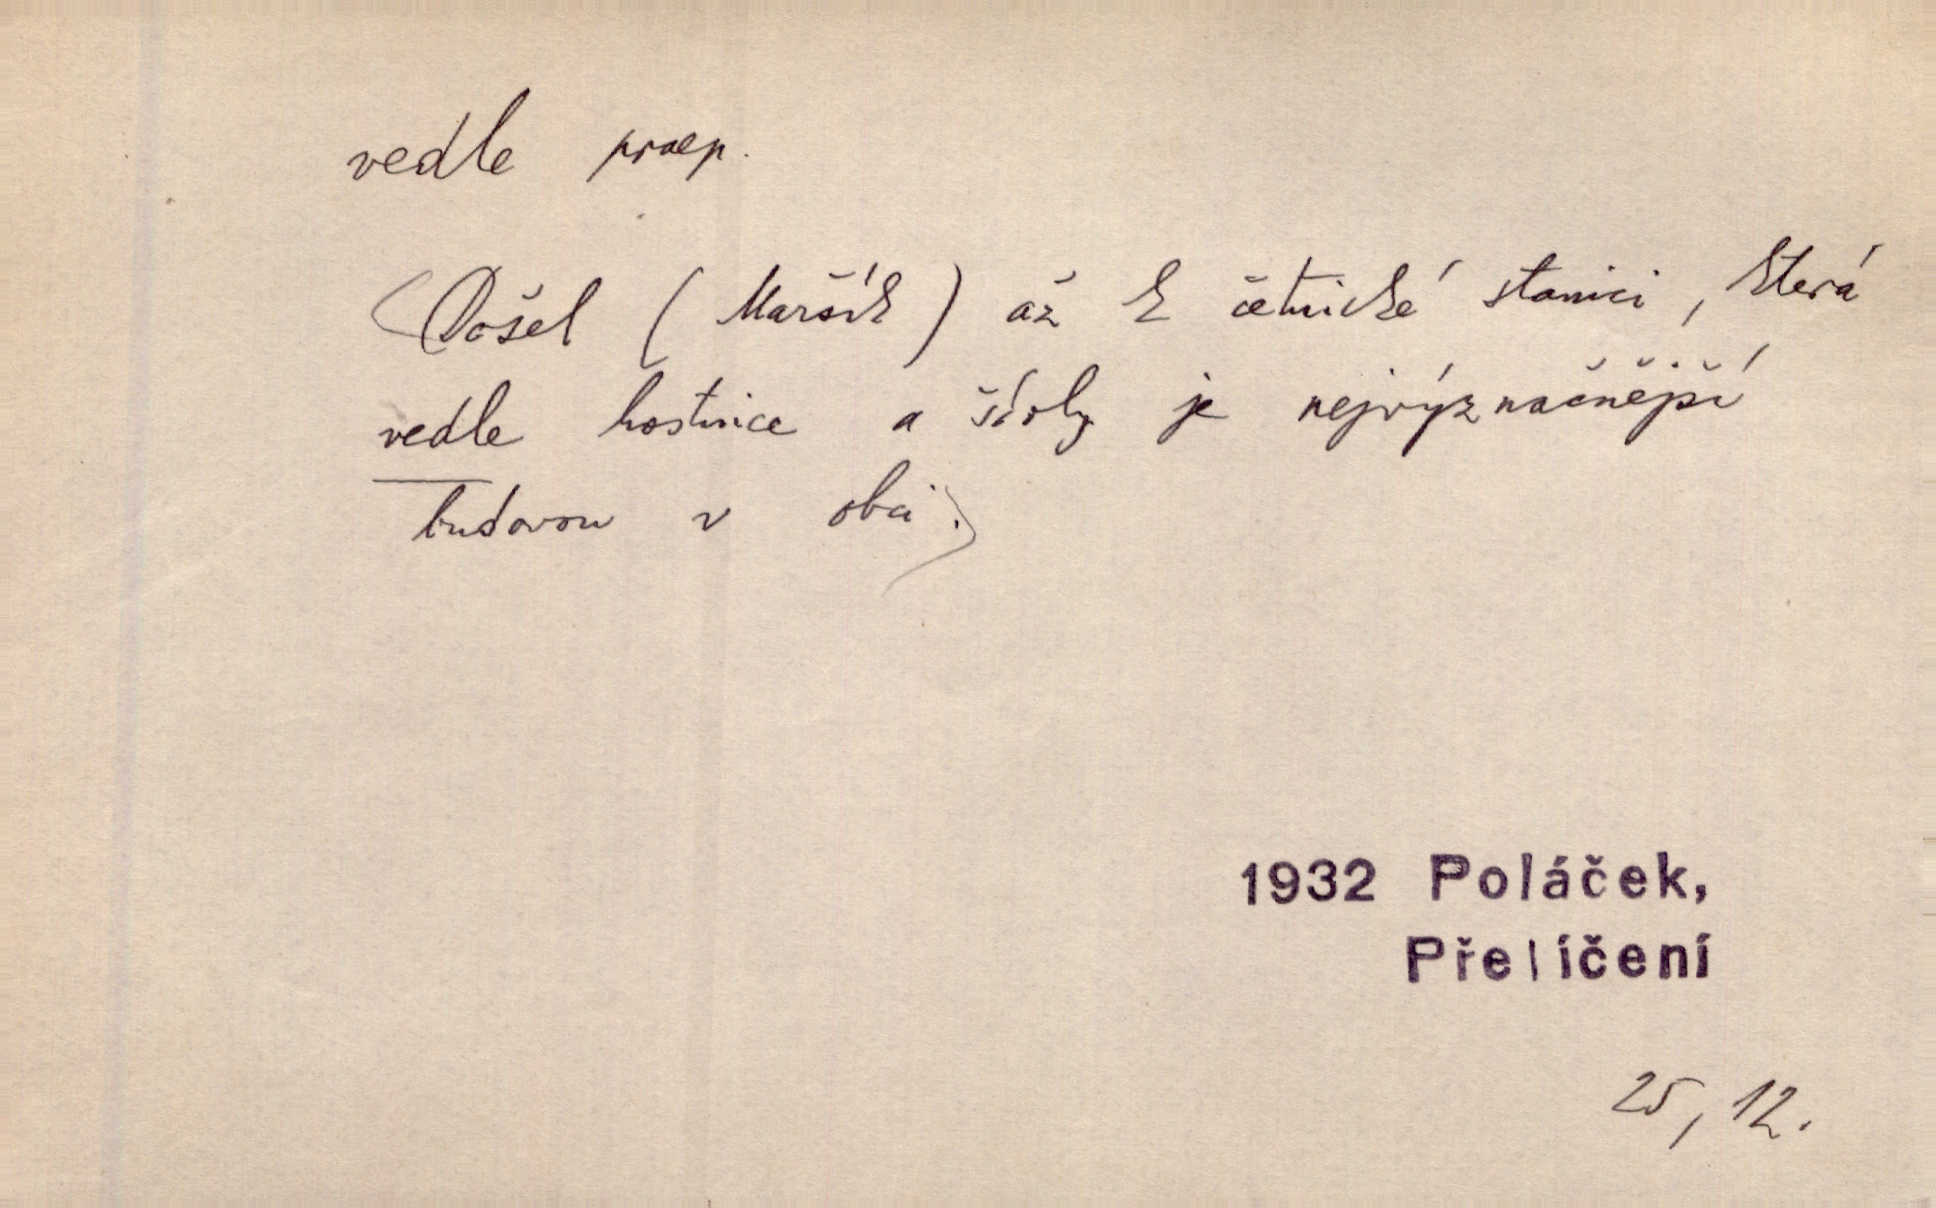 vedle praep.
(Došel (Maršík) až k četnické stanici, která
vedle hostnice a školy je nejvýznačnější
budovou v obci.)
1932 Poláček,
Přelíčení
25, 12.